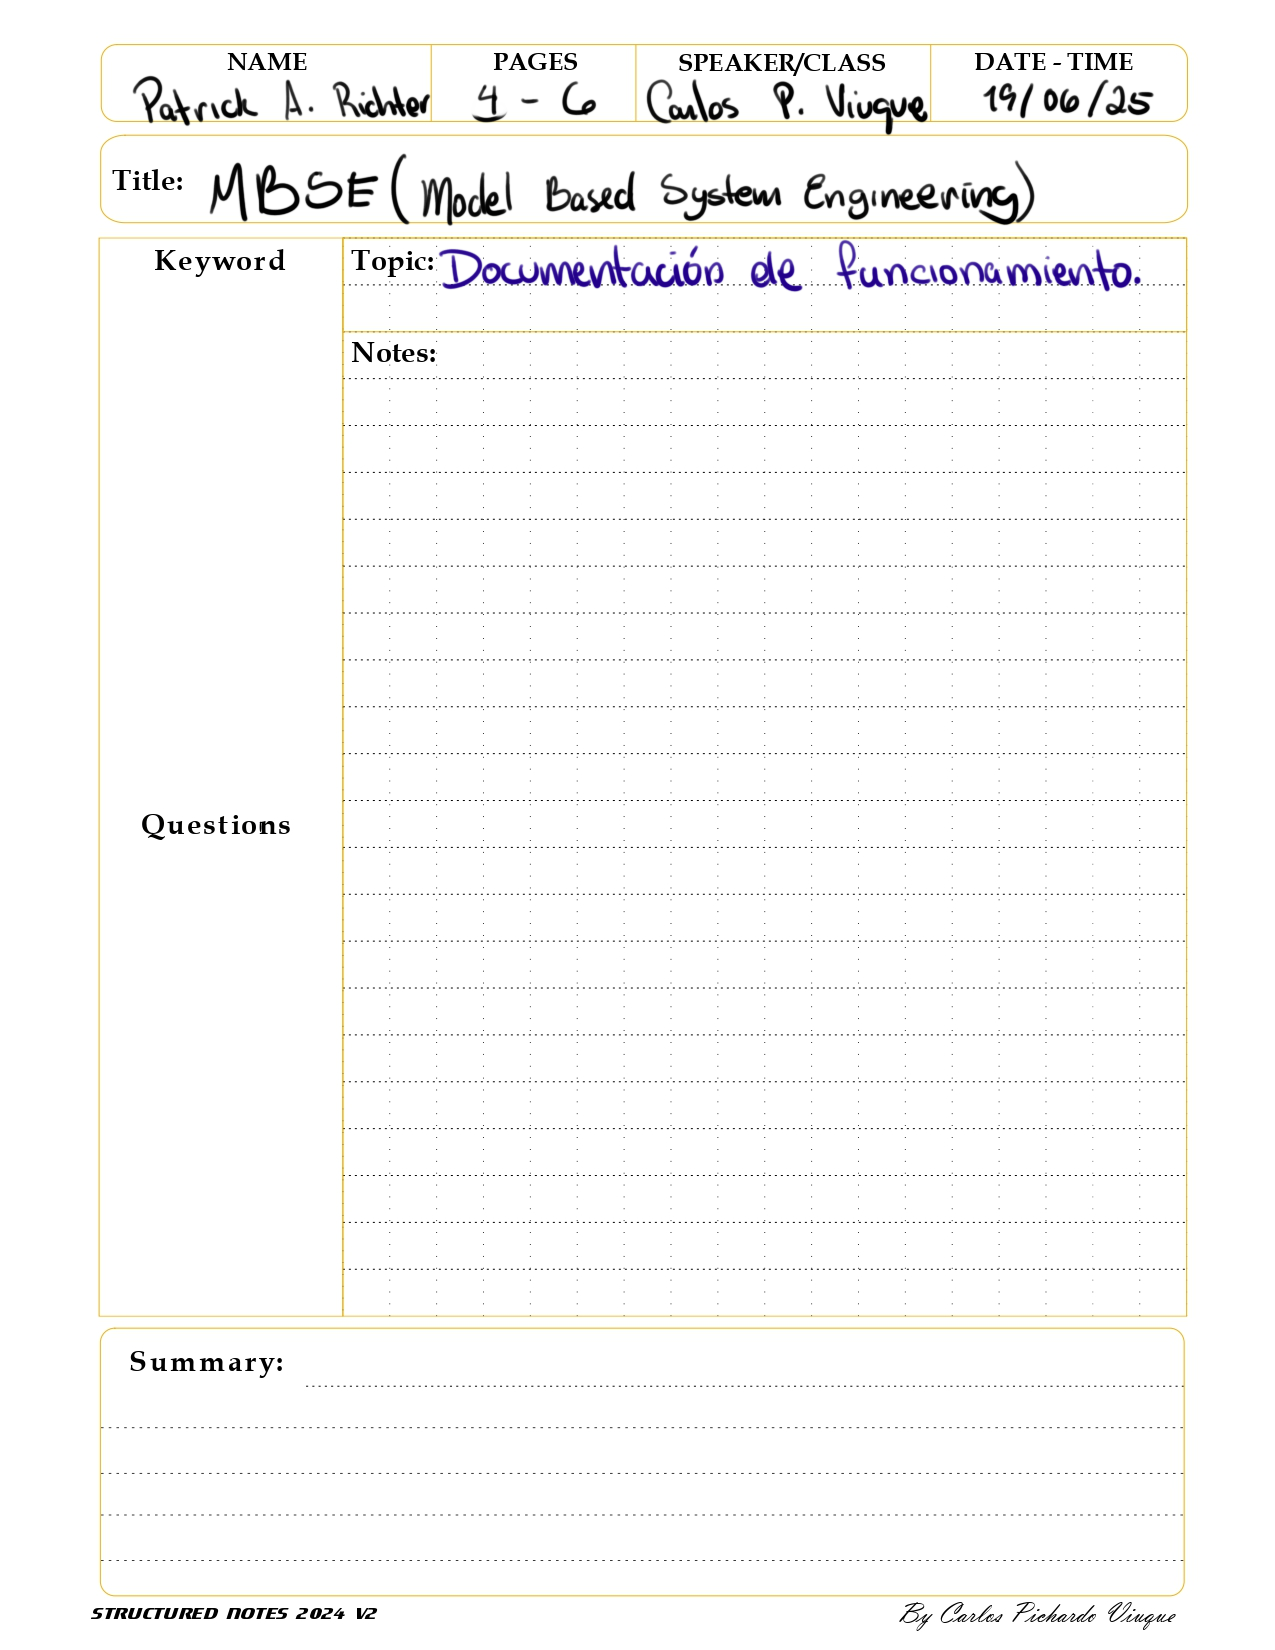 NAME PAGES SPEAKER/CLASS DATE - TIME
Patrick A. Richter 4 - 6 Carlos P. Viuque 19/06/25
Title: MBSE (Model Based System Engineering)
Keyword Topic: Documentación de funcionamiento.
Notes:
Questions
Summary:
STRUCTURED NOTES 2024 V2 By Carlos Pichardo Viuque